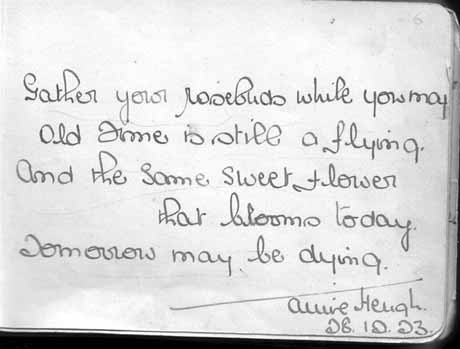 Gather your rosebuds while you may
Old Time is still a flying.
And the same sweet flower
that blooms today.
Tomorrow may be dying.
Annie Heugh.
28.10.23.